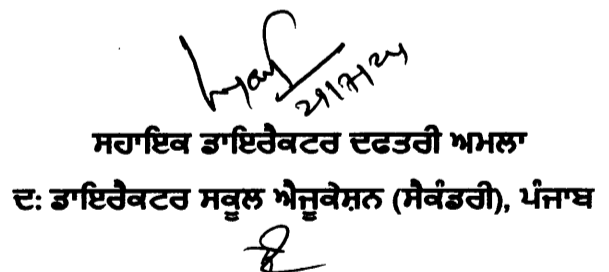 ਸਹਾਇਕ ਡਾਇਰੈਕਟਰ ਦਫਤਰੀ ਅਮਲਾ
ਦ: ਡਾਇਰੈਕਟਰ ਸਕੂਲ ਐਜੂਕੇਸ਼ਨ (ਸੈਕੰਡਰੀ), ਪੰਜਾਬ